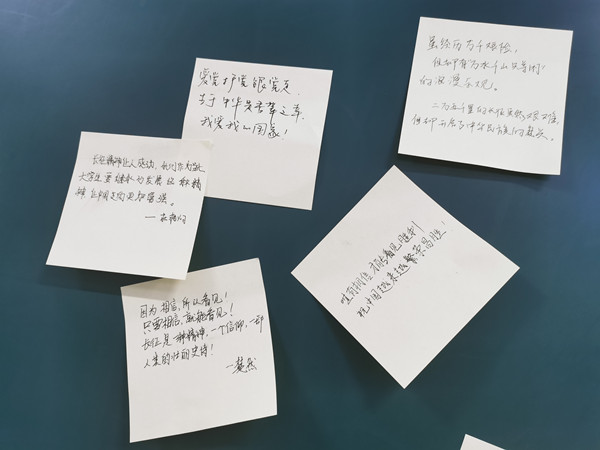 爱党护党跟党走
李
我爱我的国家！
虽经历万千艰险，
但却有万水千山只等闲
的浪漫乐观。
二万五千里的长征虽然艰难，
但却
长征精神让人感动，我们作为当代
大学生要继承与发展这种精神
让中国走向更加富强。
唯有相信，方能看见胜利！
祝中国越来越繁荣昌盛！
因为相信，所以看见！
只要相信，就能看见！
长征是一种精神，一个信仰，一部
人类的壮丽史诗！
—慧然